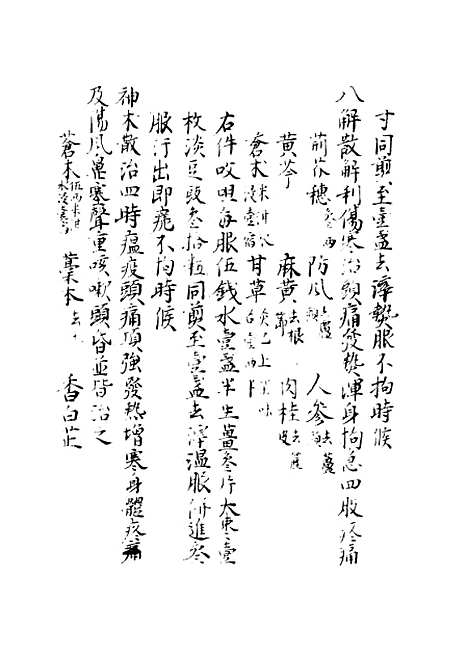 寸同煎至壹盞去滓熱服不拘時候
八解散解利傷寒治頭痛發熱渾身拘急四肢疼痛
荊芥穗叁兩 防風去蘆 人參去蘆
黃芩 麻黃去根節 肉桂去皮
蒼朮米泔浸壹宿 甘草炙已上
右件㕮咀每服伍錢水壹盞半生薑叁片大棗壹
枚淡豆豉叁拾粒同煎至壹盞去滓溫服併進叁
服汗出即痊不拘時候
神朮散治四時瘟疫頭痛項強發熱增寒身體疼痛
及傷風鼻塞聲重咳嗽頭昏並皆治之
蒼朮伍兩米泔 藁本去 香白芷